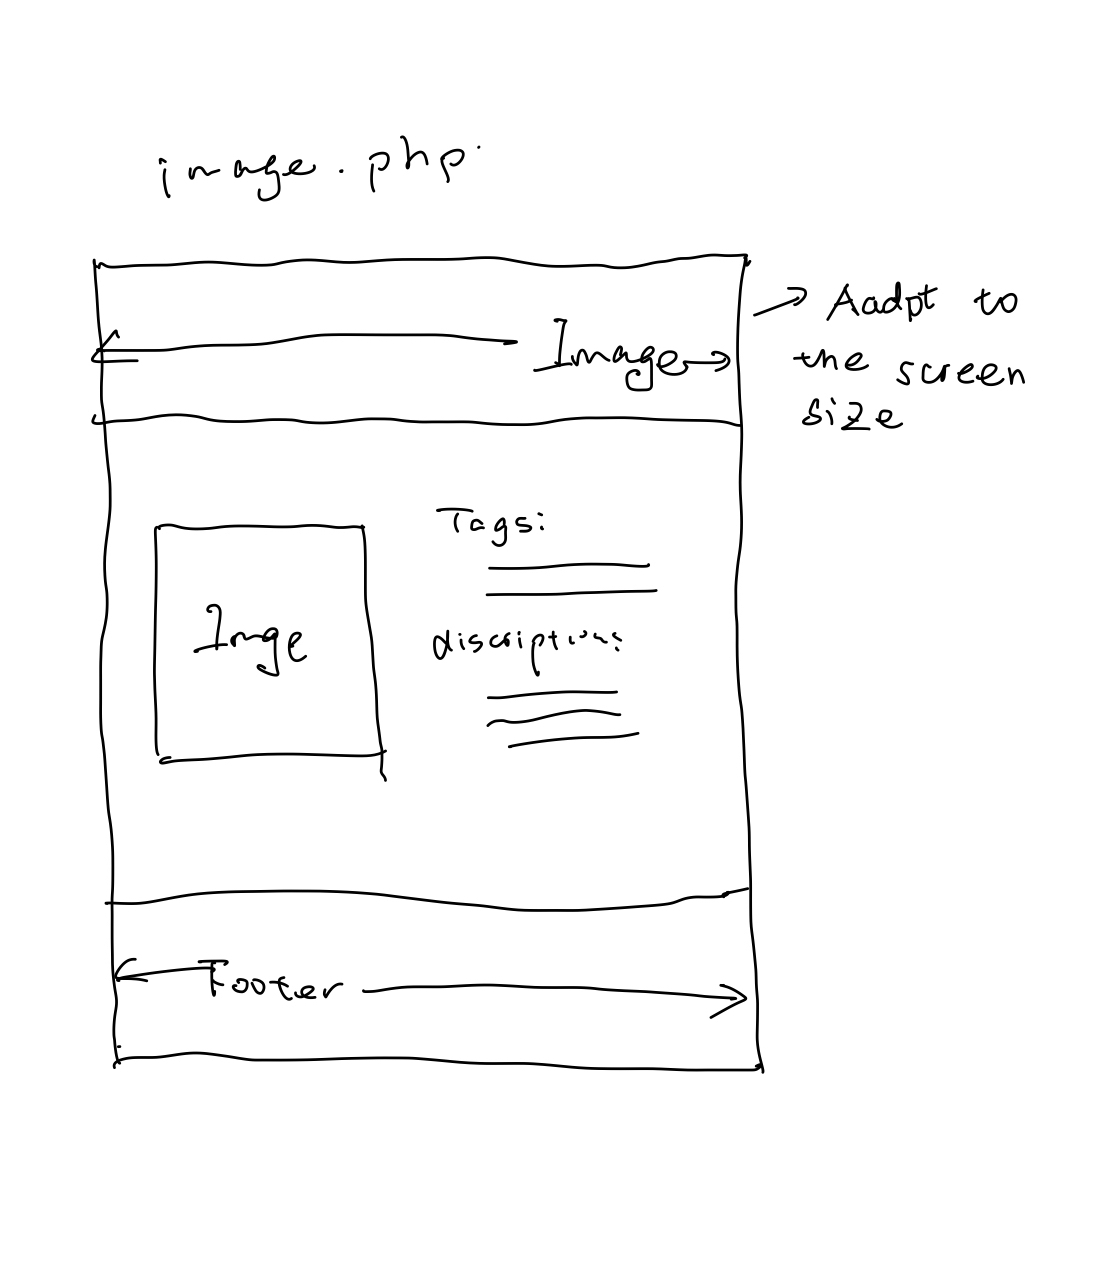 image.php
Image
Aadpt to
the screen
size
Tags:
Imge
discription:
Footer